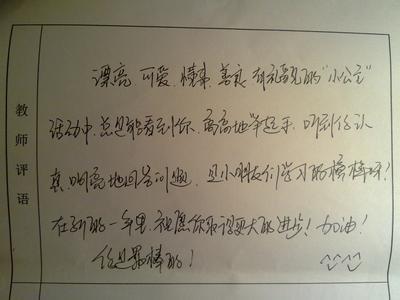 教师评语
漂亮、可爱、懂事、善良、有礼貌的"小公主"
活动中,总是能看到你,高高地举起手,听到你认
真、响亮地回答问题,是小朋友们学习的榜样呀!
在新的一年里,祝愿你取得更大的进步!加油!
你是最棒的!